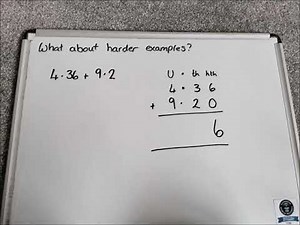 What about harder examples?
4.36 + 9.2
U . th hth
4 . 3 6
+ 9 . 2 0
6